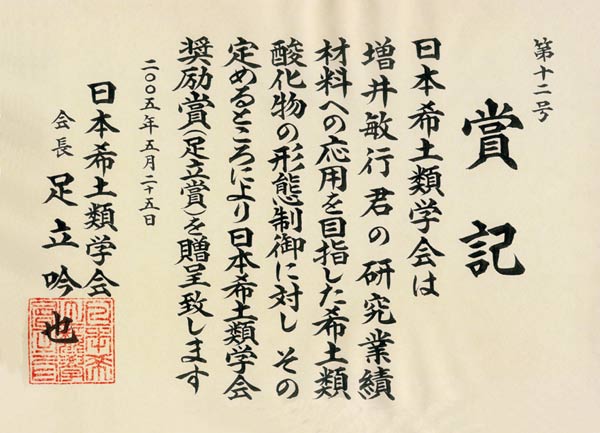 第十二号
賞記
日本希土類学会は
増井敏行君の研究業績
材料への応用を目指した希土類
酸化物の形態制御に対し その
定めるところにより日本希土類学会
奨励賞(足立賞)を贈呈致します
二〇〇五年五月二十五日
日本希土類学会
会長 足立吟也